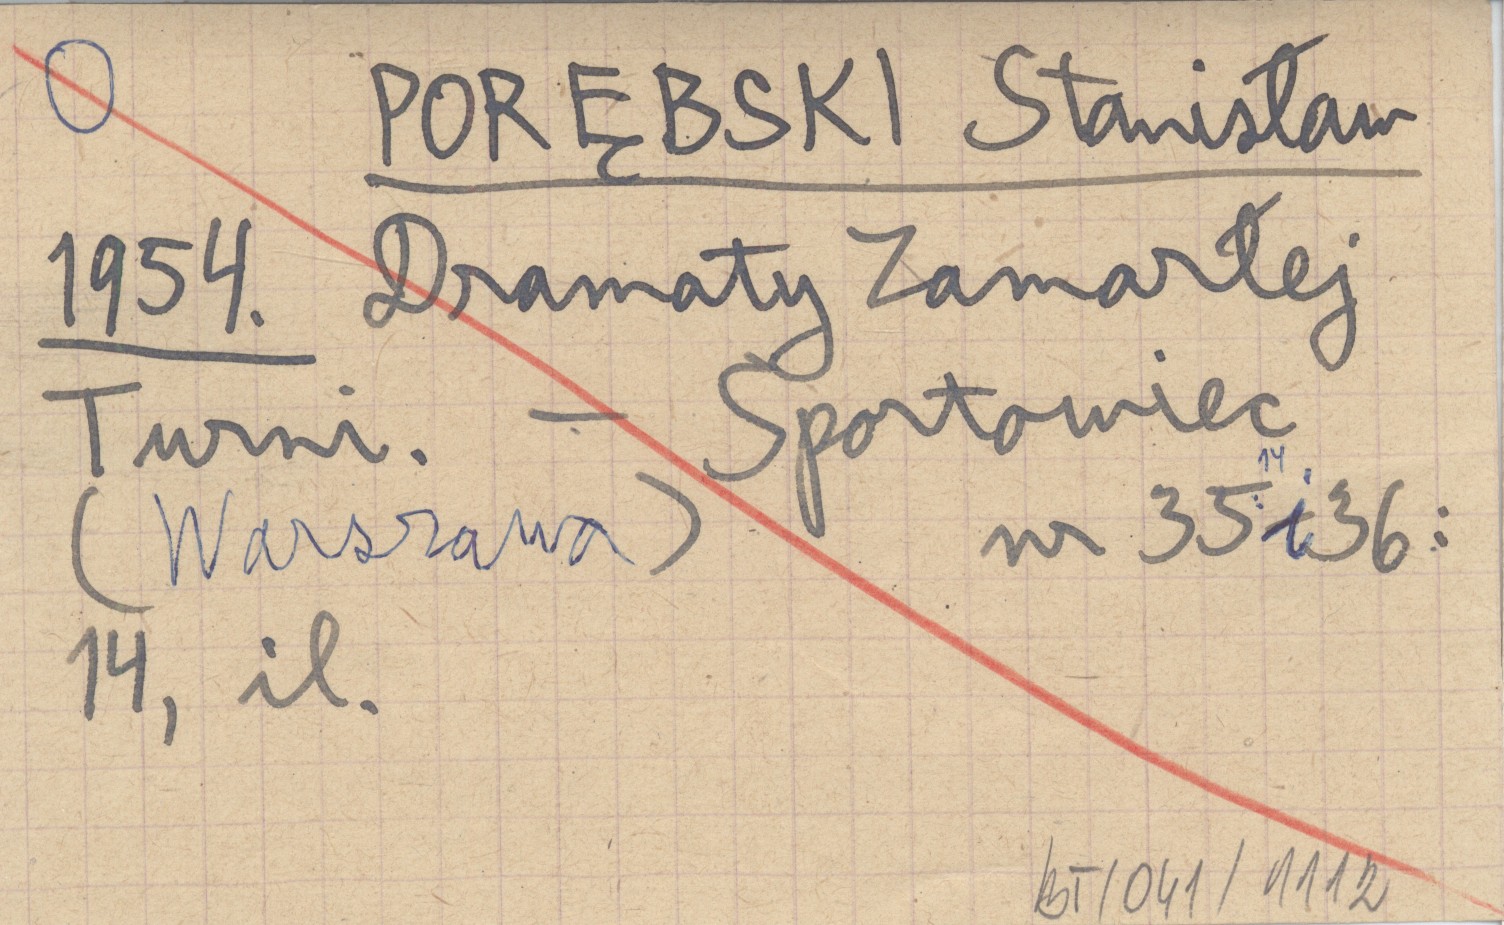 PORĘBSKI Stanisław
1954. Dramaty Zamarłej
Turni. – Sportowiec
(Warszawa) nr 35:14 i 36:
14, il.
BT/041/1112